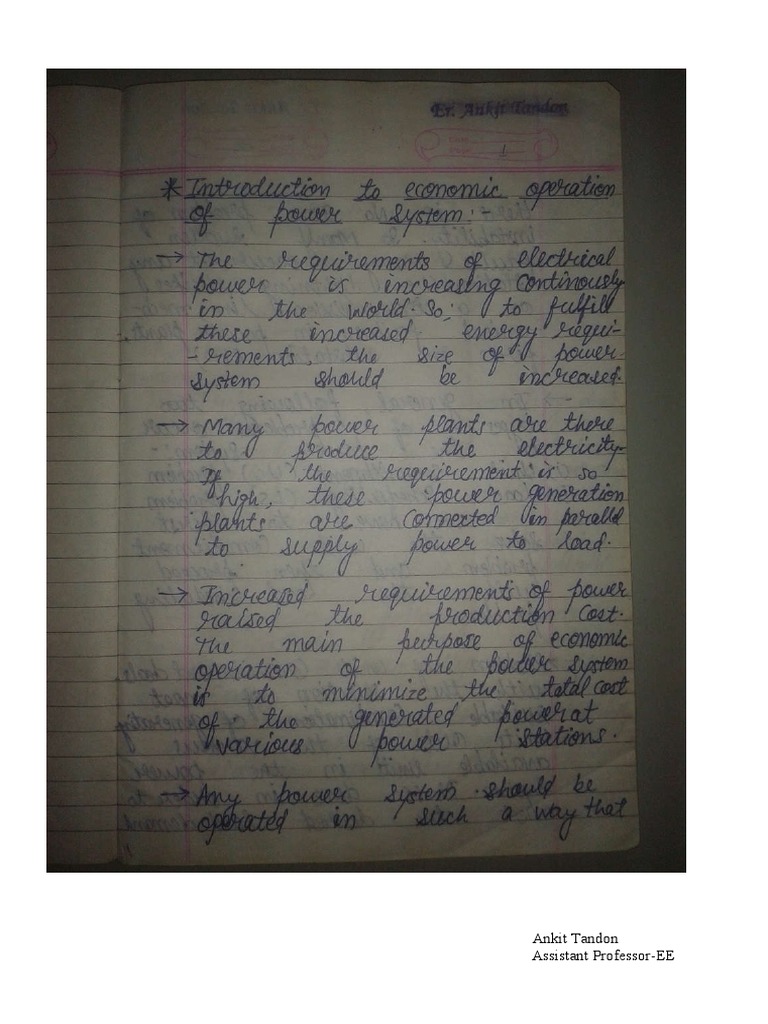 Er. Ankit Tandon
1
* Introduction to economic operation
of power system:-
→ The requirements of electrical
power is increasing continously
in the world. So, to fulfill
these increased energy requi-
-rements, the size of power
system should be increased.
→ Many power plants are there
to produce the electricity.
If the requirement is so
high, these power generation
plants are connected in parallel
to supply power to load.
→ Increased requirements of power
raised the production cost.
The main purpose of economic
operation of the power system
is to minimize the total cost
of the generated power at
various power stations.
→ Any power system should be
operated in such a way that
Ankit Tandon
Assistant Professor-EE